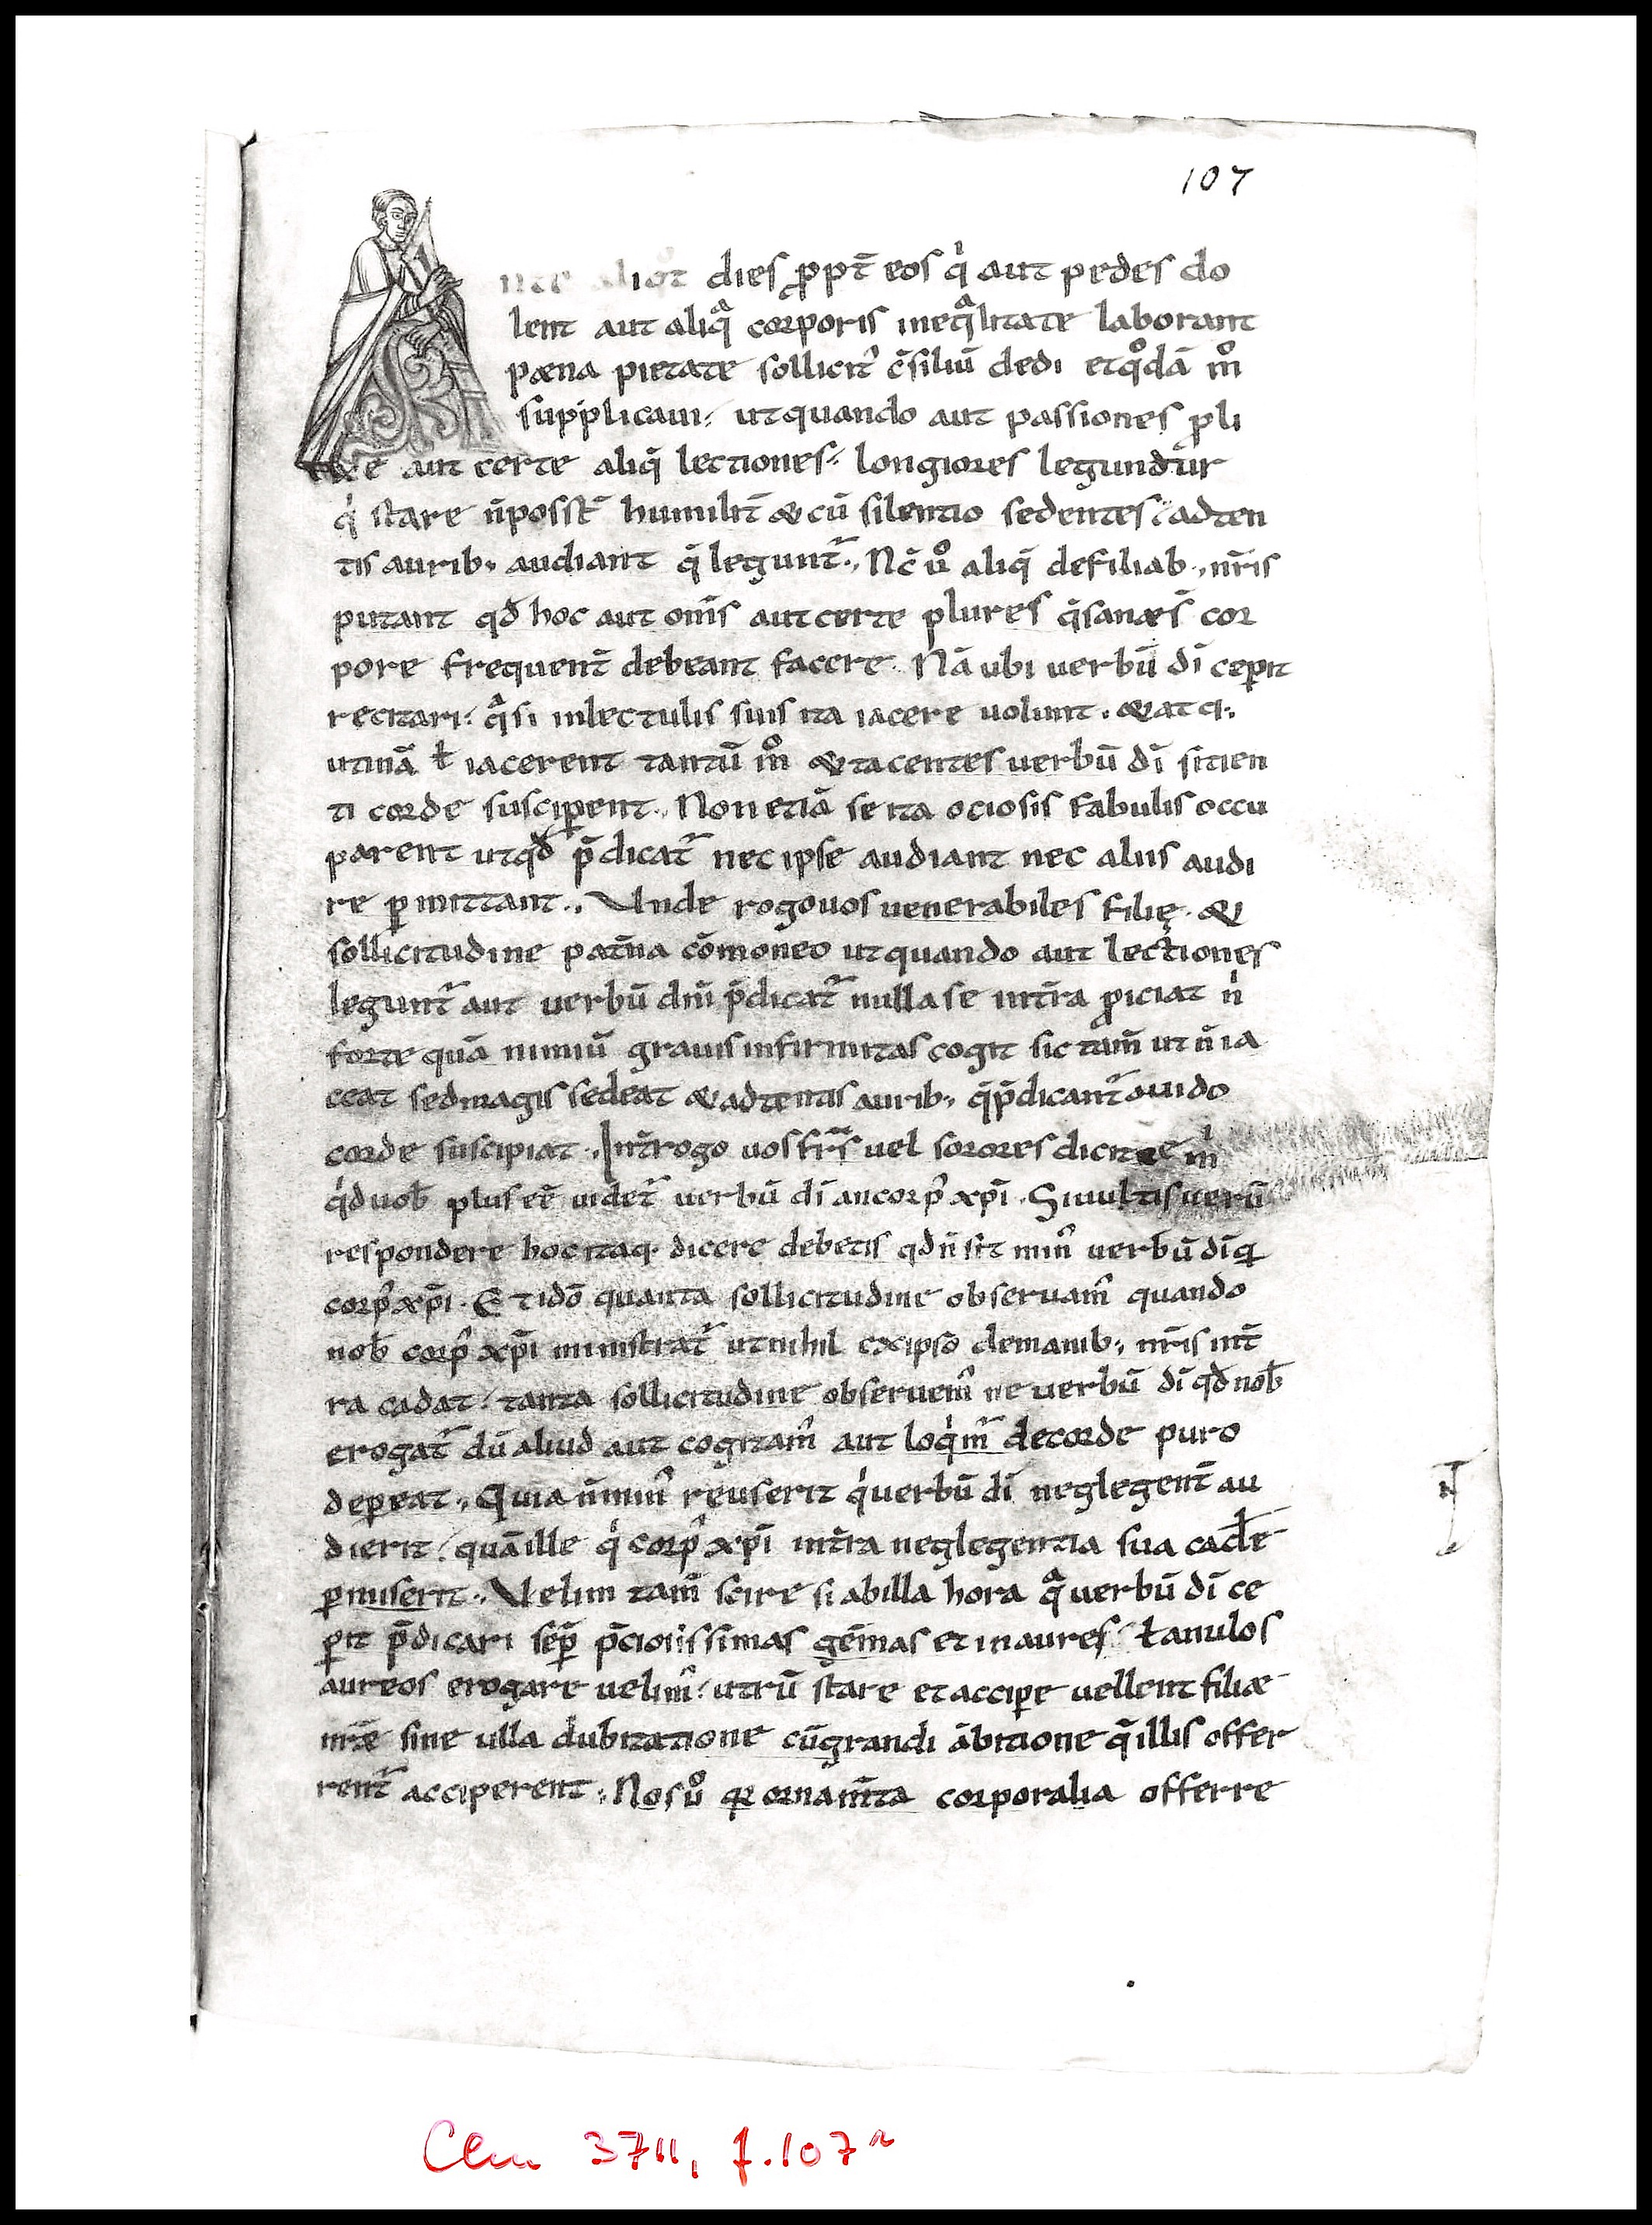 107
dies ꝓpt̄ eos qͥ aut pedes do
lent aut aliqͣ corporis ineqͣlitate laborant
pæna pietate sollicit᾽ c̄siliū dedi et qͦdā mͦ
supplicaui ut quando aut passiones ꝓli
xæ aut certe aliq̄ lectiones longiores legundur
qͥ stare n̄ posst̄ humilit̄ & cū silentio sedentes adten
tis aurib; audiant q̄ legunt᷑. Nc̄ ůͦ aliq̄ de filiab; nr̄is
putant qđ hoc aut om̄s aut certe plures q̄ sanæ s̄ cor
pore frequent̄ debeant facere. Nā ubi uerbū dī cep̲it
recitari qͣsi in lectulis suis ita iacere uolunt. & atq;
utinā ł iacerent tantū mͦ & tacentes uerbū dī sitien
ti corde suscip̲ent. Non etiā se ita ociosis fabulis occu
parent ut qđ p̄dicat᷑ nec ipse audiant nec aliis audi
re ꝑmittant. Unde rogo uos uenerabiles filię. &
sollicitudine pat̄na cōmoneo ut quando aut lectiones
legunt᷑ aut uerbū dn̄i p̄dicat᷑ nulla se int̄ra ꝓiciat nͥ
forte quā nimiū grauis infirmitas cogit sic tam̄ ut n̄ ia
ceat sed magis sedeat & adtentis aurib; q̄ p̄dicant᷑ auido
corde suscipiat. Int̄rogo uos frs̄ uel sorores dicite mͥ
qͥd uob̄ plus eē uidet᷑ uerbū dī an corp᾽ xp̄i. Si uultis uerū
respondere hoc itaq; dicere debetis qd n̄ sit min᾽ uerbū dī qͣ
corp᾽ xp̄i. Et idō quanta sollicitudine obseruam᾽ quando
nob̄ corp᾽ xp̄i ministrat᷑ ut nihil ex ipso de manib; nr̄is int̄
ra cadat tanta sollicitudine obseruem᾽ ne uerbū dī qđ nob̄
erogat᷑ dū aliud aut cogitam᾽ aut loqͥm᷑ de corde puro
depereat. Quia n̄ min᾽ reus erit qͥ uerbū dī neglegent̄ au
dierit quā ille qͥ corp᾽ xp̄i int̄ra neglegentia sua cade᷑
ꝑmiserit. Uelim tam̄ scire si ab illa hora qͣ uerbū dī ce
ꝑit p̄dicari sep̄ p̄ciosissimas gēmas et inaures ł anulos
aureos erogare uelim᾽ utrū stare et accip̲e uellent filiæ
nr̄æ sine ulla dubitatione cū grandi ābitione q̄ illis offer
rent᷑ acciperent. Nos ůͦ qͣ ornam̄ta corporalia offerre
Clm 3711, f. 107ʳ